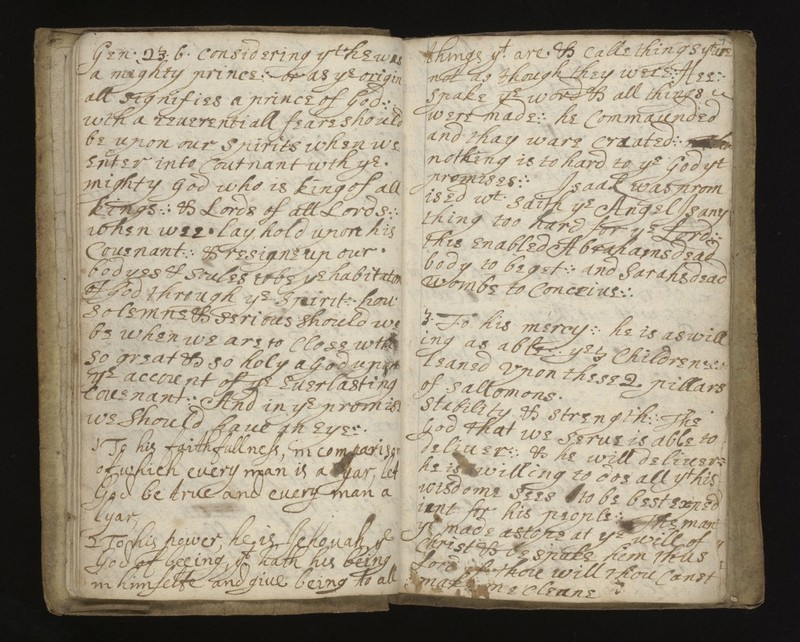 Gen. 23. 6. Considering yt he was
a mighty prince:. or as ye origin
all signifies a prince of God:.
with a reverentiall feare should
be upon our spirits when we
enter into Coutnant wth ye.
mighty God who is king of all
kings:. & Lords of all Lords:.
when wee. lay hold upon his
Couenant:. & resigne up our.
bodyes & soules to be ye habitation
of God through ye spirit:. how
solemne & serious should we
be when we are to Close wth
so great & so holy a God upon
ye account of ye Everlasting
Couenant:. And in ye promise
we should haue an eye:.
1 To his faithfullness, in comparison
of which euery man is a lyar, let
God be true and euery man a
lyar,
2 To his power, he is Jehouah ye
God of beeing, yt hath his being
in himselfe and giue being to all
things yt are & calls things yt are
not as though they were:. Hee:
spake ye word & all things
were made:. he Commaunded
and thay ware Created:.
nothing is to hard to ye God yt
promises:. Isaak was prom
ised wt saith ye Angel Is any
thing too hard for ye Lord:.
this enabled Abrahams dead
body to beget:. and Sarahs dead
wombe to Conceiue:.
3. To his mercy:. he is as will
ing as able:. yes Children:
leaned upon these 2 pillars
of sallomons.
Stability & strength:. The
God that we serue is able to
deliuer:. & he will deliuer:
he is willing to doe all yt his
wisdome sees to be best exped
ient for his people:. The man
yt made a stope at ye will of
Christ & bespake him thus
Lord if thou will thou Canst
make me Cleane